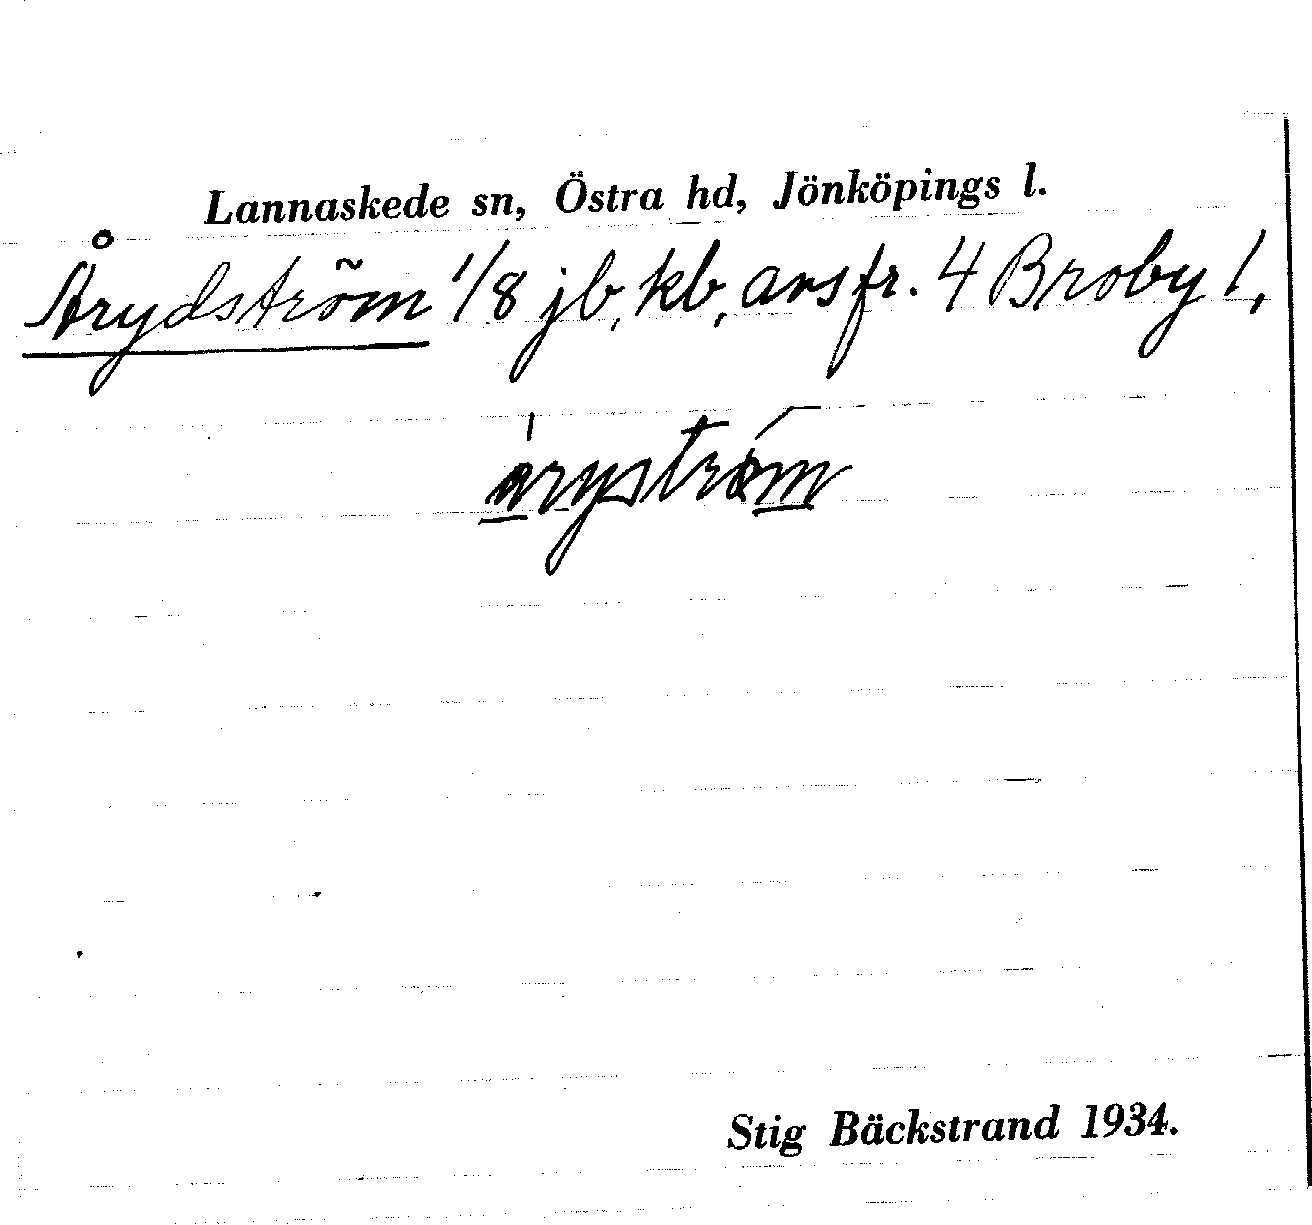 Lannaskede sn, Östra hd, Jönköpings l.
Årydström 1/8 jb, kb, avs fr. 4 Broby 1,
åryström
Stig Bäckstrand 1934.